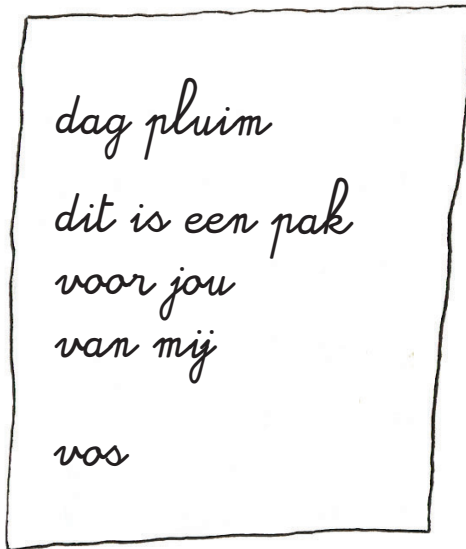 dag pluim
dit is een pak
voor jou
van mij
vos